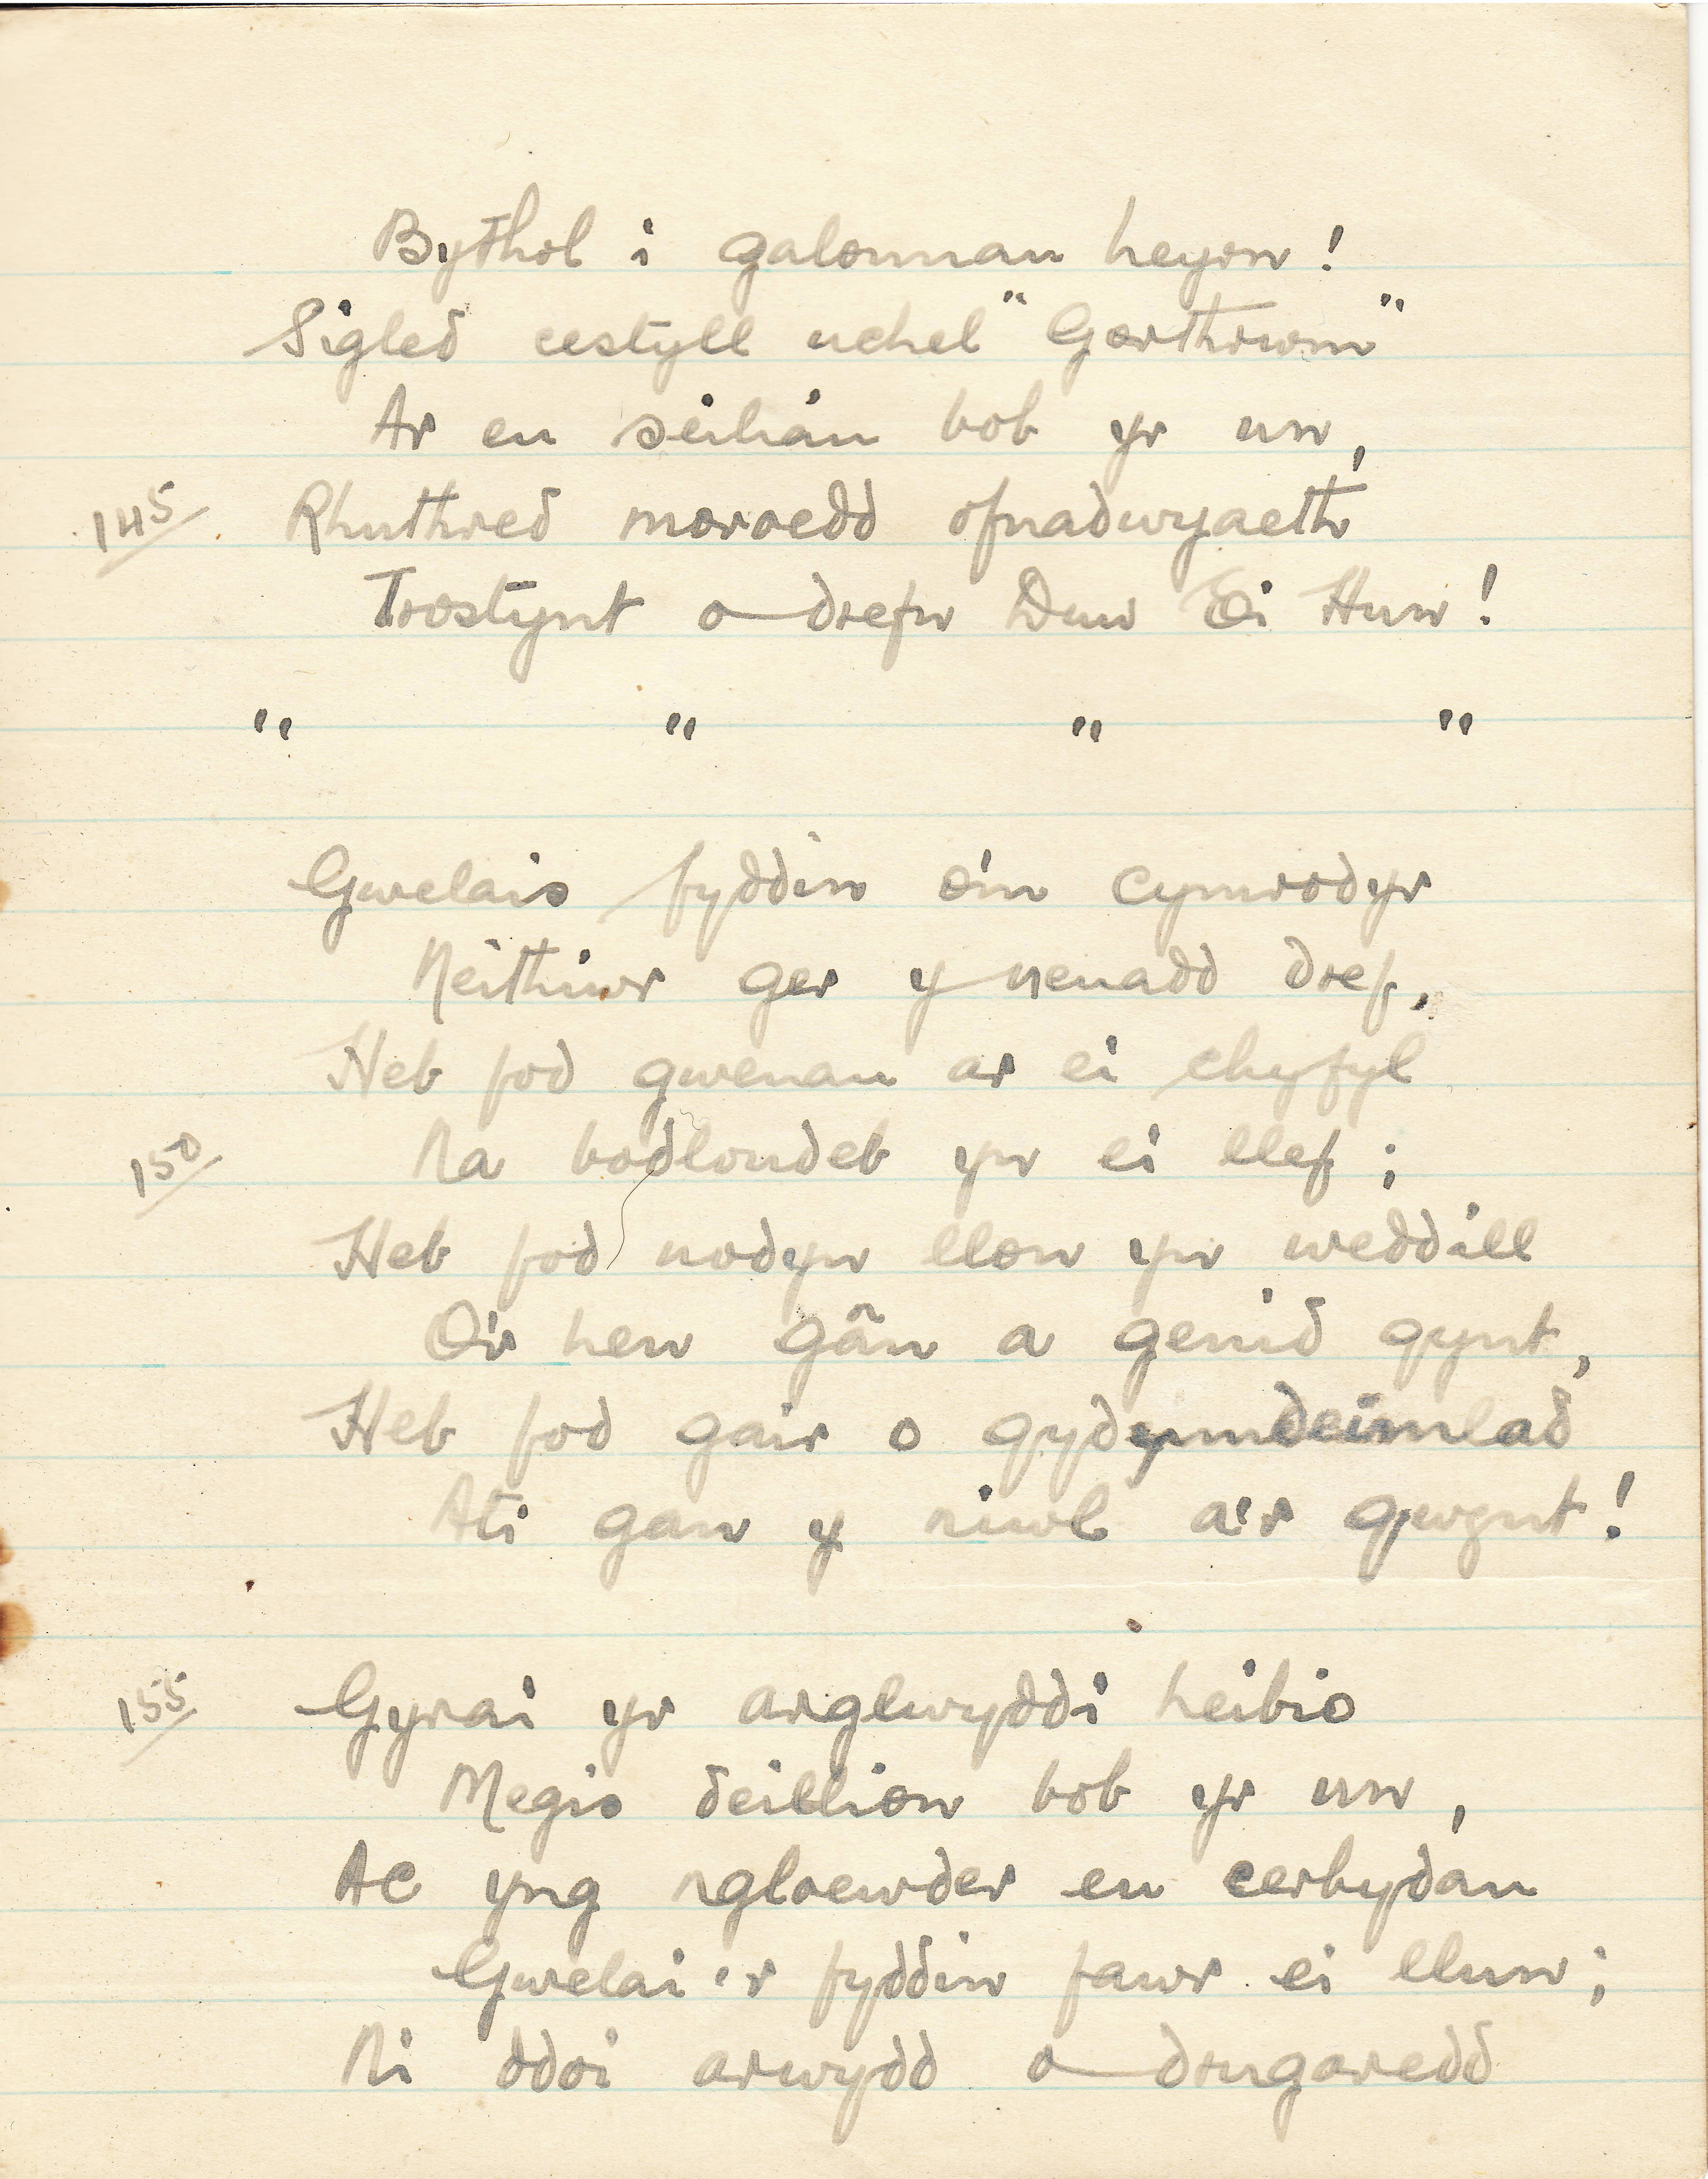 Bythol i galonnau heyrn!
Sigled cestyll uchel "Gorthrwm"
Ar eu seiliau bob yr un,
145 Rhuthred moroedd ofnadwyaeth
Trostynt o drefn Duw Ei Hun!
" " " "
Gwelais fyddin o'm cymrodyr
Neithiwr ger y neuadd dref,
Heb fod gwenau ar ei chyfyl
150 Na bodlondeb yn ei llef;
Heb fod nodyn llon yn weddill
O'r hen gân a genid gynt,
Heb fod gair o gydymdeimlad
Ati gan y niwl a'r gwynt!
155 Gyrai yr arglwyddi heibio
Megis deillion bob yr un,
Ac yng ngloewder eu cerbydau
Gwelai'r fyddin fawr ei llun;
Ni ddoi arwydd o drugaredd